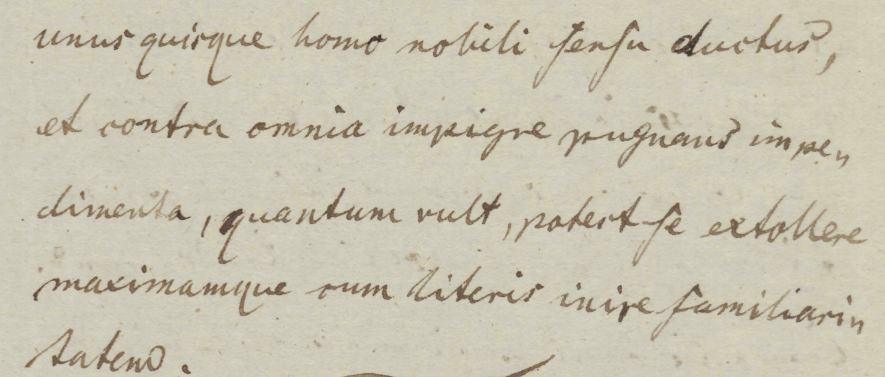 unus quisque homo nobili sensu ductus,
et contra omnia impigre pugnans impe„
dimenta, quantum vult, potest se extollere
maximamque cum literis inire familiari„
tatem.